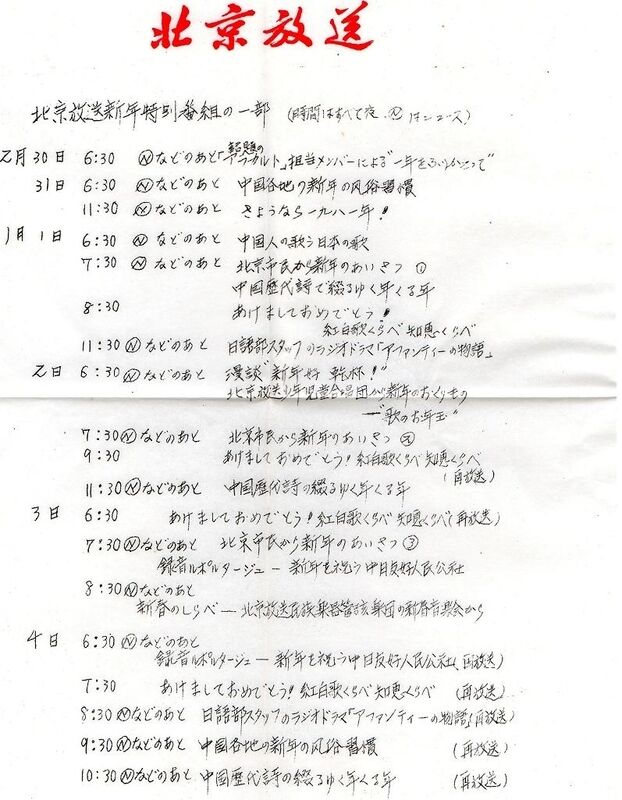 北京放送
北京放送新年特別番組の一部 (時間はすべて夜、Ⓝはニュース)
乙月30日 6:30 Ⓝなどのあと「アラカルト」担当メンバーによる"一年をふりかえって"
31日 6:30 Ⓝなどのあと 中国各地の新年の风俗習慣
11:30 Ⓝなどのあと さようなら一九八一年!
1月1日 6:30 Ⓝなどのあと 中国人の歌う日本の歌
7:30 Ⓝなどのあと 北京市民から新年のあいさつ ①
中国歴代詩で綴るゆく年くる年
8:30 あけましておめでとう!
紅白歌くらべ 知恵くらべ
11:30 Ⓝなどのあと 日語部スタッフのラジオドラマ「アファンティーの物語」
乙日 6:30 Ⓝなどのあと 漫談"新年好 乾杯!"
北京放送少年児童合唱団が新年のおくりもの
―"歌のお年玉"
7:30 Ⓝなどのあと 北京市民から新年のあいさつ ②
9:30 あけましておめでとう!紅白歌くらべ 知恵くらべ
(再放送)
11:30 Ⓝなどのあと 中国歴代詩の綴るゆく年くる年
3日 6:30 あけましておめでとう!紅白歌くらべ 知恵くらべ(再放送)
7:30 Ⓝなどのあと 北京市民から新年のあいさつ ③
録音ルポルタージュ―新年を祝う中日友好人民公社
8:30 Ⓝなどのあと
新春のしらべ―北京放送民族楽器管弦楽団の新春音楽会から
4日 6:30 Ⓝなどのあと
録音ルポルタージュ―新年を祝う中日友好人民公社(再放送)
7:30 あけましておめでとう!紅白歌くらべ 知恵くらべ (再放送)
8:30 Ⓝなどのあと 日語部スタッフのラジオドラマ「アファンティーの物語」(再放送)
9:30 Ⓝなどのあと 中国各地の新年の风俗習慣 (再放送)
10:30 Ⓝなどのあと 中国歴代詩の綴るゆく年くる年 (再放送)